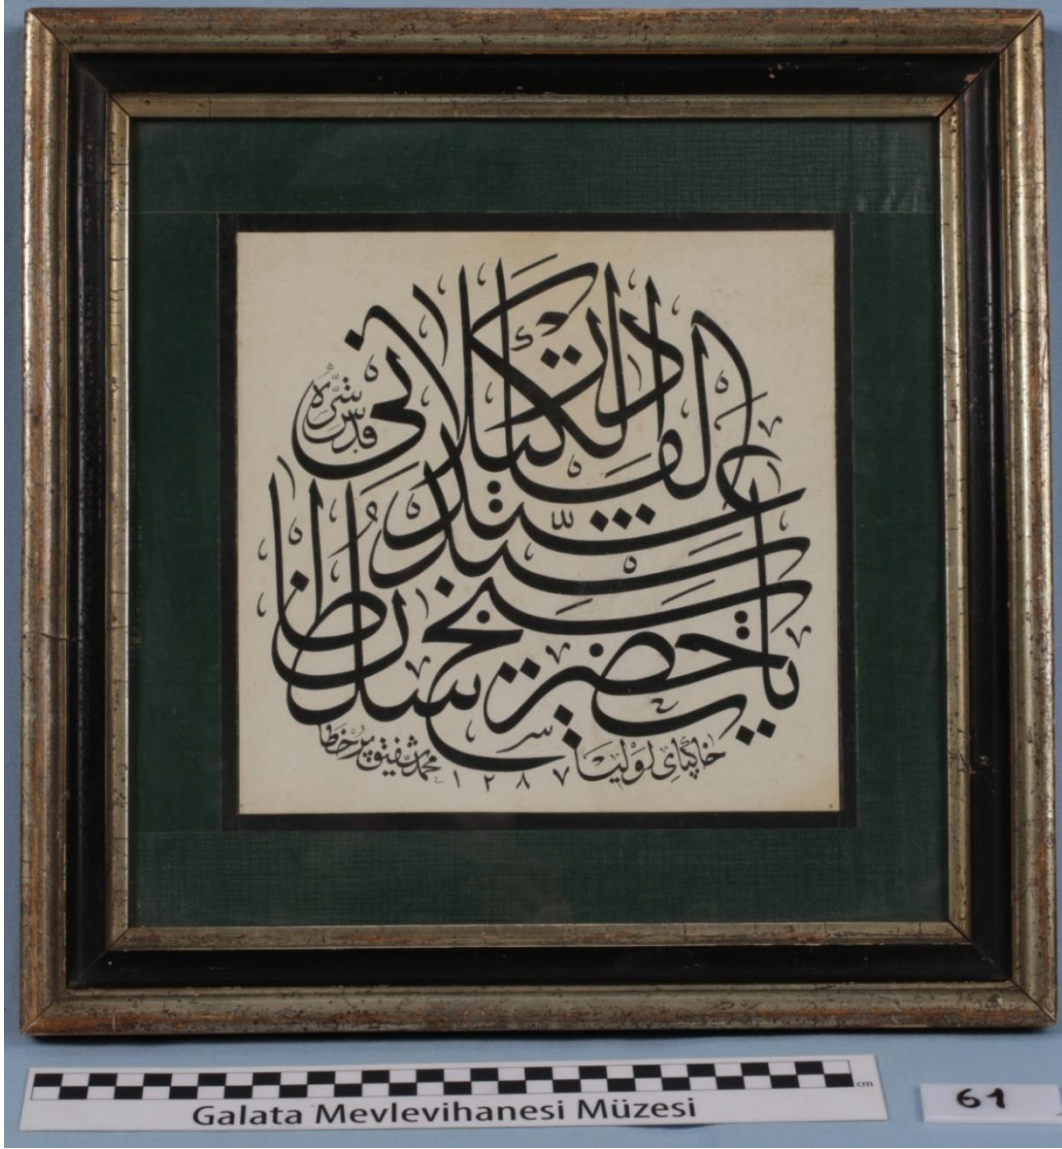 يا حضرت سلطان
شيخ سيد
عبد القادر الكيلانى
قدس سره
خاكپاى اوليا
محمد شفيق پر خطا
١٢٨٧
Galata Mevlevihanesi Müzesi
cm
61